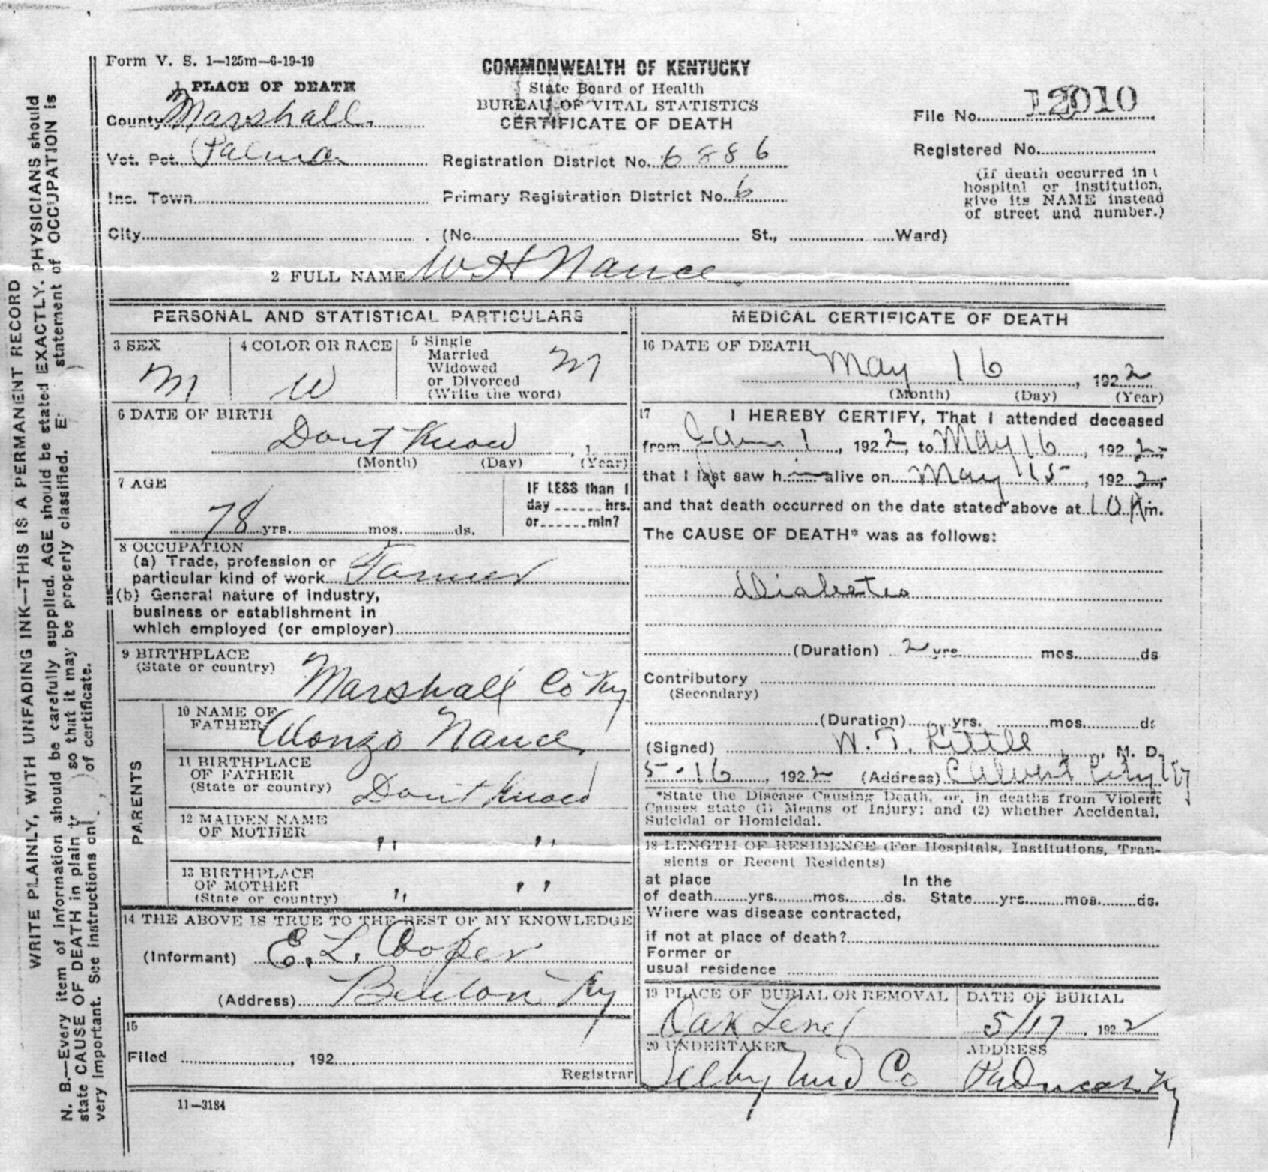 Form V. S. 1—125m—6-19-19
COMMONWEALTH OF KENTUCKY
State Board of Health
BUREAU OF VITAL STATISTICS
CERTIFICATE OF DEATH
1 PLACE OF DEATH
County Marshall.
Vot. Pct. Palma
Inc. Town
City (No. St., Ward)
Registration District No. 6886
Primary Registration District No. 6
File No. 12010
Registered No.
(If death occurred in
hospital or institution,
give its NAME instead
of street and number.)
2 FULL NAME W H Nance
PERSONAL AND STATISTICAL PARTICULARS
3 SEX
M
4 COLOR OR RACE
W
5 Single
Married
Widowed
or Divorced
(Write the word)
M
6 DATE OF BIRTH
Dont Know , 1
(Month) (Day) (Year)
7 AGE
78 yrs. mos. ds.
IF LESS than 1
day ...... hrs.
or ...... min?
8 OCCUPATION
(a) Trade, profession or
particular kind of work Farmer
(b) General nature of industry,
business or establishment in
which employed (or employer)
9 BIRTHPLACE
(State or country) Marshall Co Ky
PARENTS
10 NAME OF
FATHER Alonzo Nance
11 BIRTHPLACE
OF FATHER
(State or country) Dont Know
12 MAIDEN NAME
OF MOTHER " "
13 BIRTHPLACE
OF MOTHER
(State or country) " "
14 THE ABOVE IS TRUE TO THE BEST OF MY KNOWLEDGE
(Informant) E. L. Cooper
(Address) Benton Ky
15
Filed , 192
Registrar
11—3184
MEDICAL CERTIFICATE OF DEATH
16 DATE OF DEATH
May 16 , 1922
(Month) (Day) (Year)
17 I HEREBY CERTIFY, That I attended deceased
from Jan 1 , 1922, to May 16 , 1922,
that I last saw him alive on May 15 , 1922,
and that death occurred on the date stated above at 10 Am.
The CAUSE OF DEATH* was as follows:
Diabetes
(Duration) 2 yrs mos. ds
Contributory
(Secondary)
(Duration) yrs. mos. ds
(Signed) W. T. Little , M. D.
5-16 , 1922 (Address) Calvert City Ky
*State the Disease Causing Death, or, in deaths from Violent
Causes state (1) Means of Injury; and (2) whether Accidental,
Suicidal or Homicidal.
18 LENGTH OF RESIDENCE (For Hospitals, Institutions, Tran-
sients or Recent Residents)
at place In the
of death yrs. mos. ds. State yrs. mos. ds.
Where was disease contracted,
if not at place of death?
Former or
usual residence
19 PLACE OF BURIAL OR REMOVAL DATE OF BURIAL
Oak 5/17 , 1922
20 UNDERTAKER ADDRESS
Co Paducah Ky
WRITE PLAINLY, WITH UNFADING INK—THIS IS A PERMANENT RECORD
N. B.—Every item of information should be carefully supplied. AGE should be stated EXACTLY. PHYSICIANS should
state CAUSE OF DEATH in plain so that it may be properly classified. statement of OCCUPATION is
very important. See instructions on of certificate.